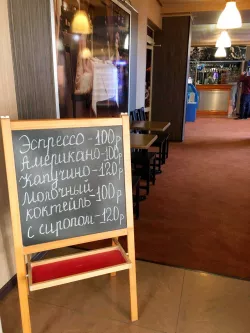 Эспрессо-100р
Американо-100р
Капучино-120р
Молочный
коктейль-100р
с сиропом-120р